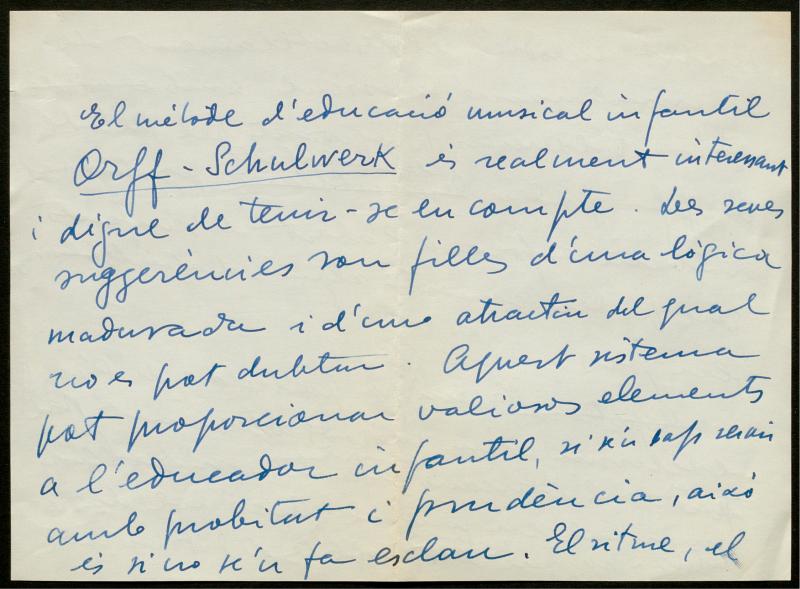 El mètode d'educació musical infantil
Orff-Schulwerk és realment interessant
i digne de tenir-se en compte. Les seves
suggerències son filles d'una lògica
madurada i d'un atractiu del qual
no es pot dubtar. Aquest sistema
pot proporcionar valiosos elements
a l'educador infantil, si se'n sap servir
amb probitat i prudència, aixó
és si no se'n fa esclau. El ritme, el